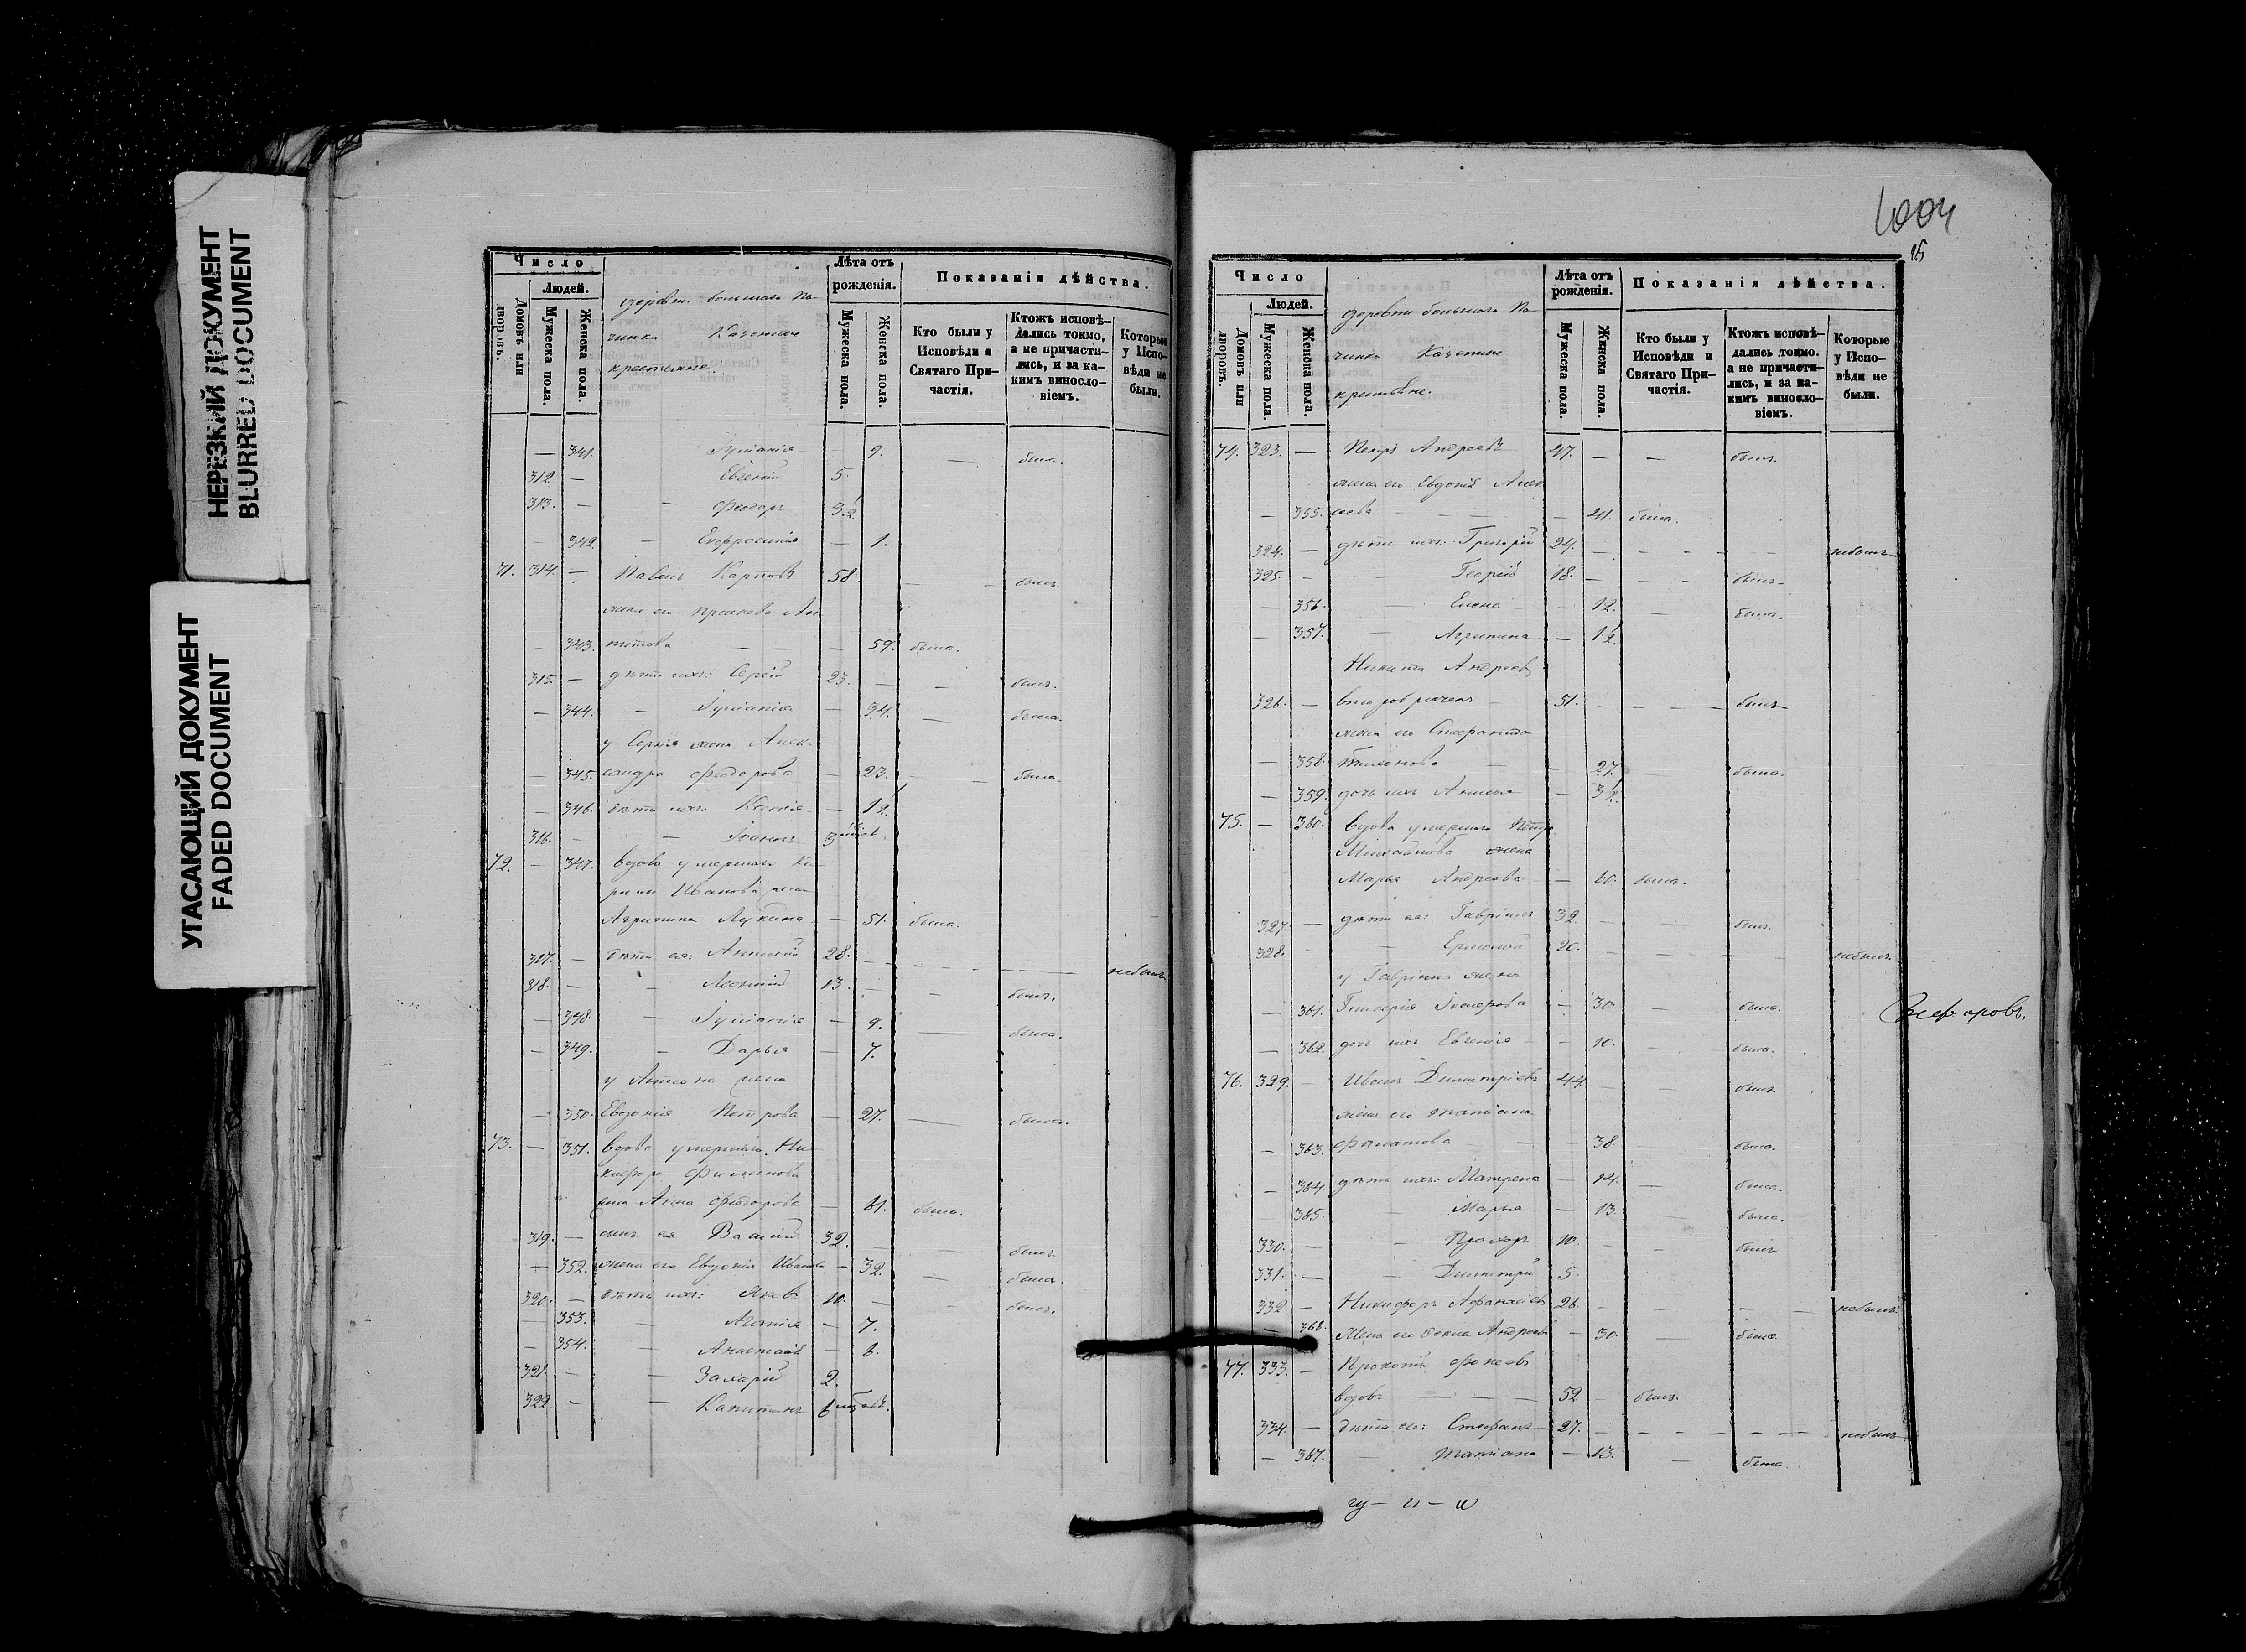 НЕРЕЗКИЙ ДОКУМЕНТ
BLURRED DOCUMENT
УГАСАЮЩИЙ ДОКУМЕНТ
FADED DOCUMENT
Число
Людей.
Домовъ или дворовъ.
Мужеска пола.
Женска пола.
деревни большаго По-
чинка
крестьяне.
Лѣта отъ рожденія.
Мужеска пола.
Женска пола.
Показанія дѣйства.
Кто были у Исповѣди и Святаго Причастія.
Ктожъ исповѣдались токмо, а не причастились, и за какимъ винословіемъ.
Которые у Исповѣди не были.
— 341. Іуліанія — 9. — была.
312. — Евгеній 5.
313. — — Феодоръ 3½
— 342. — Евфросинія — 1.
71. 314. — Павелъ Карповъ 58. — — былъ.
жена его
— 343. — — — 59. была.
315. — дѣти ихъ: Сергій 23. — — былъ.
— 344. — Іуліанія — 34. — была.
у Сергія жена Алек-
— 345. сандра Феодорова — 23. — — была.
— 346. дѣти ихъ: — 1½
316. — — Іоаннъ 3
72. — 347. вдова умершаго Ки-
Иванова жена
Агрипина Лукина — 51. была.
317. — дѣти ея: 28. — небылъ
318. — — Леонтій 13. — — былъ.
— 348. — Іуліанія — 9. — была.
— 349. — Дарья — 7.
у жена
— 350. Евдокія Петрова — 27. — была.
73. — 351. вдова умершаго Ни-
кифора Филипова
жена Анна Феодорова — 61. была.
319. — сынъ ея Василій 32. — — былъ.
— 352. жена его Евдокія Иванова — 32. — была.
320. — дѣти ихъ: Яковъ 10. — — былъ.
— 353. — Агапія — 7.
— 354. — Анастасія — 6.
321. — — Захарій 2.
322. — — Капитонъ 6
1004
15
Число
Людей.
Домовъ или дворовъ.
Мужеска пола.
Женска пола.
деревни большаго По-
чинка
крестьяне.
Лѣта отъ рожденія.
Мужеска пола.
Женска пола.
Показанія дѣйства.
Кто были у Исповѣди и Святаго Причастія.
Ктожъ исповѣдались токмо. а не причастились, и за какимъ винословіемъ.
Которые у Исповѣди не были.
74. 323. — Петръ Андреевъ 47. — — былъ.
жена его Евдокія Алек-
— 355. сеева — — — 41. была.
324. — дѣти ихъ: Григорій 24. — — — — небылъ
325. — — Георгій 18. — — былъ
— 356. — Елена — 12. — была.
— 357. — Агрипина — 1½
Никита Андреевъ
326. — второбрачен 51. — — — — былъ
жена его Стефанида
— 358. Тихонова — — 27. — была.
— 359. дочь ихъ — 3½
75. — 360. вдова умершаго Петра
Михайлова жена
Марья Андреева — 60. была.
327. — дѣти ея: Гавріилъ 32. — — былъ.
328. — — Ермолай 20. — — — небылъ.
у Гавріила жена
— 361. — 30. — была.
— 362. дочь ихъ Евгенія — 10. — была.
76. 329. — Иванъ Димитріевъ 44. — — былъ
жена его Татіана
— 363. — — — 38. — была.
— 364. дѣти ихъ: Матрена — 14. — была.
365. — Марья — 13. — была.
330. — — Прохоръ 10. — — былъ
331. — — Димитрій 5.
332 — Никифоръ Афанасіевъ 26. — — — — небылъ
— 366. жена его Фекла Андреева — 30. — была.
77. 333. — Прокопій
вдовъ — — — 52 — былъ.
334. — дѣти его: Стефанъ 27. — — — — небылъ
— 367. — Татіана — 13. — была.